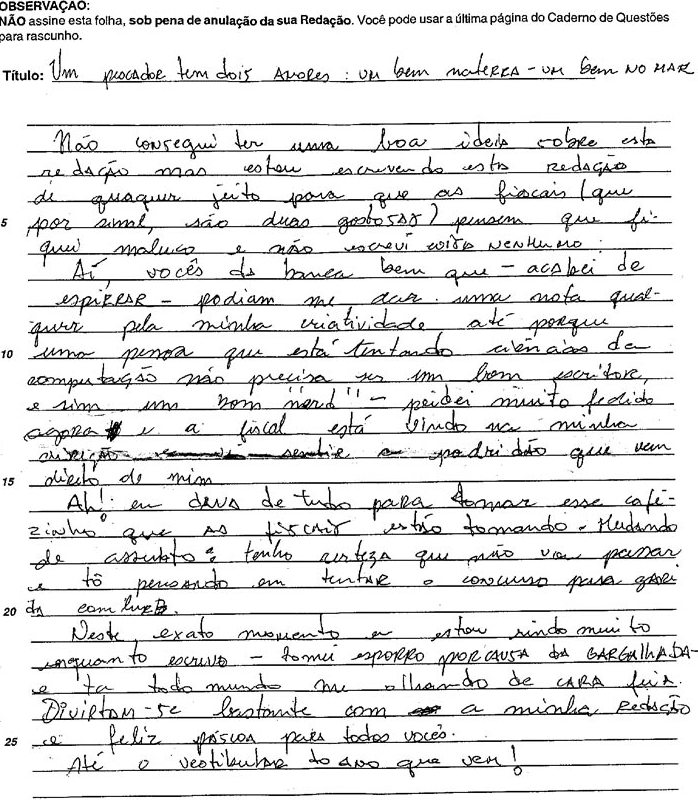 OBSERVAÇÃO:
NÃO assine esta folha, sob pena de anulação da sua Redação. Você pode usar a última página do Caderno de Questões
para rascunho.
Título: Um pescador tem dois AMORES : UM bem na terra - UM bem NO MAR
Não consegui ter uma boa ideia sobre esta
redação mas estou escrevendo esta redação
de quaquer jeito para que as fiscais (que
5 por sinal, são duas gostosas) pensem que fi-
quei maluco e não escrevi coisa nenhuma.
Aí, vocês da banca bem que - acabei de
espirrar - podiam me dar uma nota qual-
quer pela minha criatividade até porque
10 uma pessoa que está tentando ciências da
computação não precisa ser um bom escritor,
e sim um bom "nerd" - peidei muito fedido
agora e a fiscal está vindo na minha
direção sentir a podridão que vem
15 direto de mim
Ah! eu dava de tudo para tomar esse cafe-
zinho que as fiscais estão tomando. Mudando
de assunto: tenho certeza que não vou passar
e tô pensando em tentar o concurso para gari
20 da comlurb.
Neste exato momento eu estou rindo muito
enquanto escrevo - tomei esporro por causa da GARGALHADA -
e ta todo mundo me olhando de CARA feia.
Divirtam-se bastante com a minha redação
25 e feliz páscoa para todos vocês.
Até o vestibular do ano que vem!